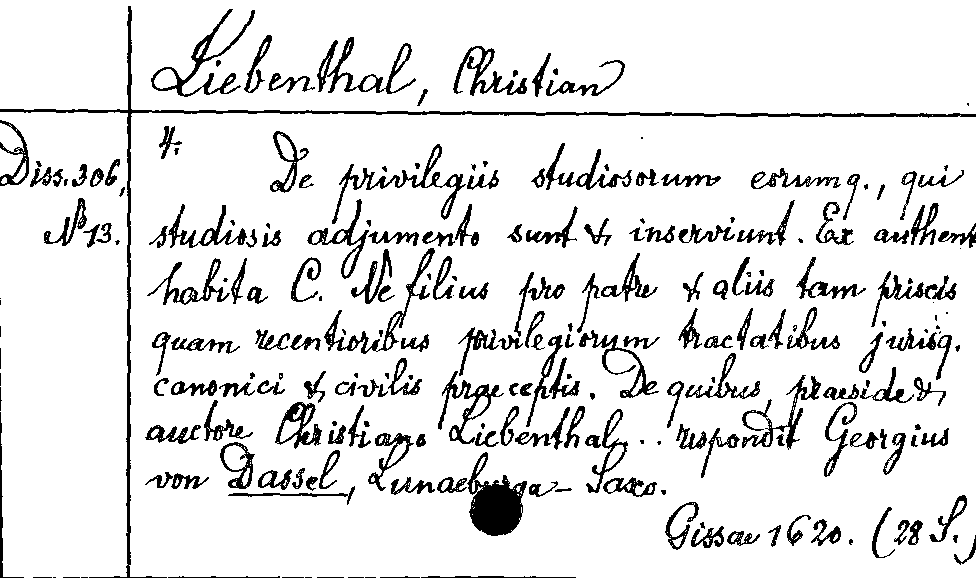 Liebenthal, Christian
Diss. 306,
No 13.
4.
De privilegiis studiosorum eorumq., qui
studiosis adjumento sunt & inserviunt. Ex authent
habita C. Ne filius pro patre & aliis tam priscis
quam recentioribus privilegiorum tractatibus jurisq.
canonici & civilis praeceptis. De quibus, praeside &
auctore Christiano Liebenthal... respondit Georgius
von Dassel, Lunaeburga-Saxo.
Gissae 1620. (28 S.)